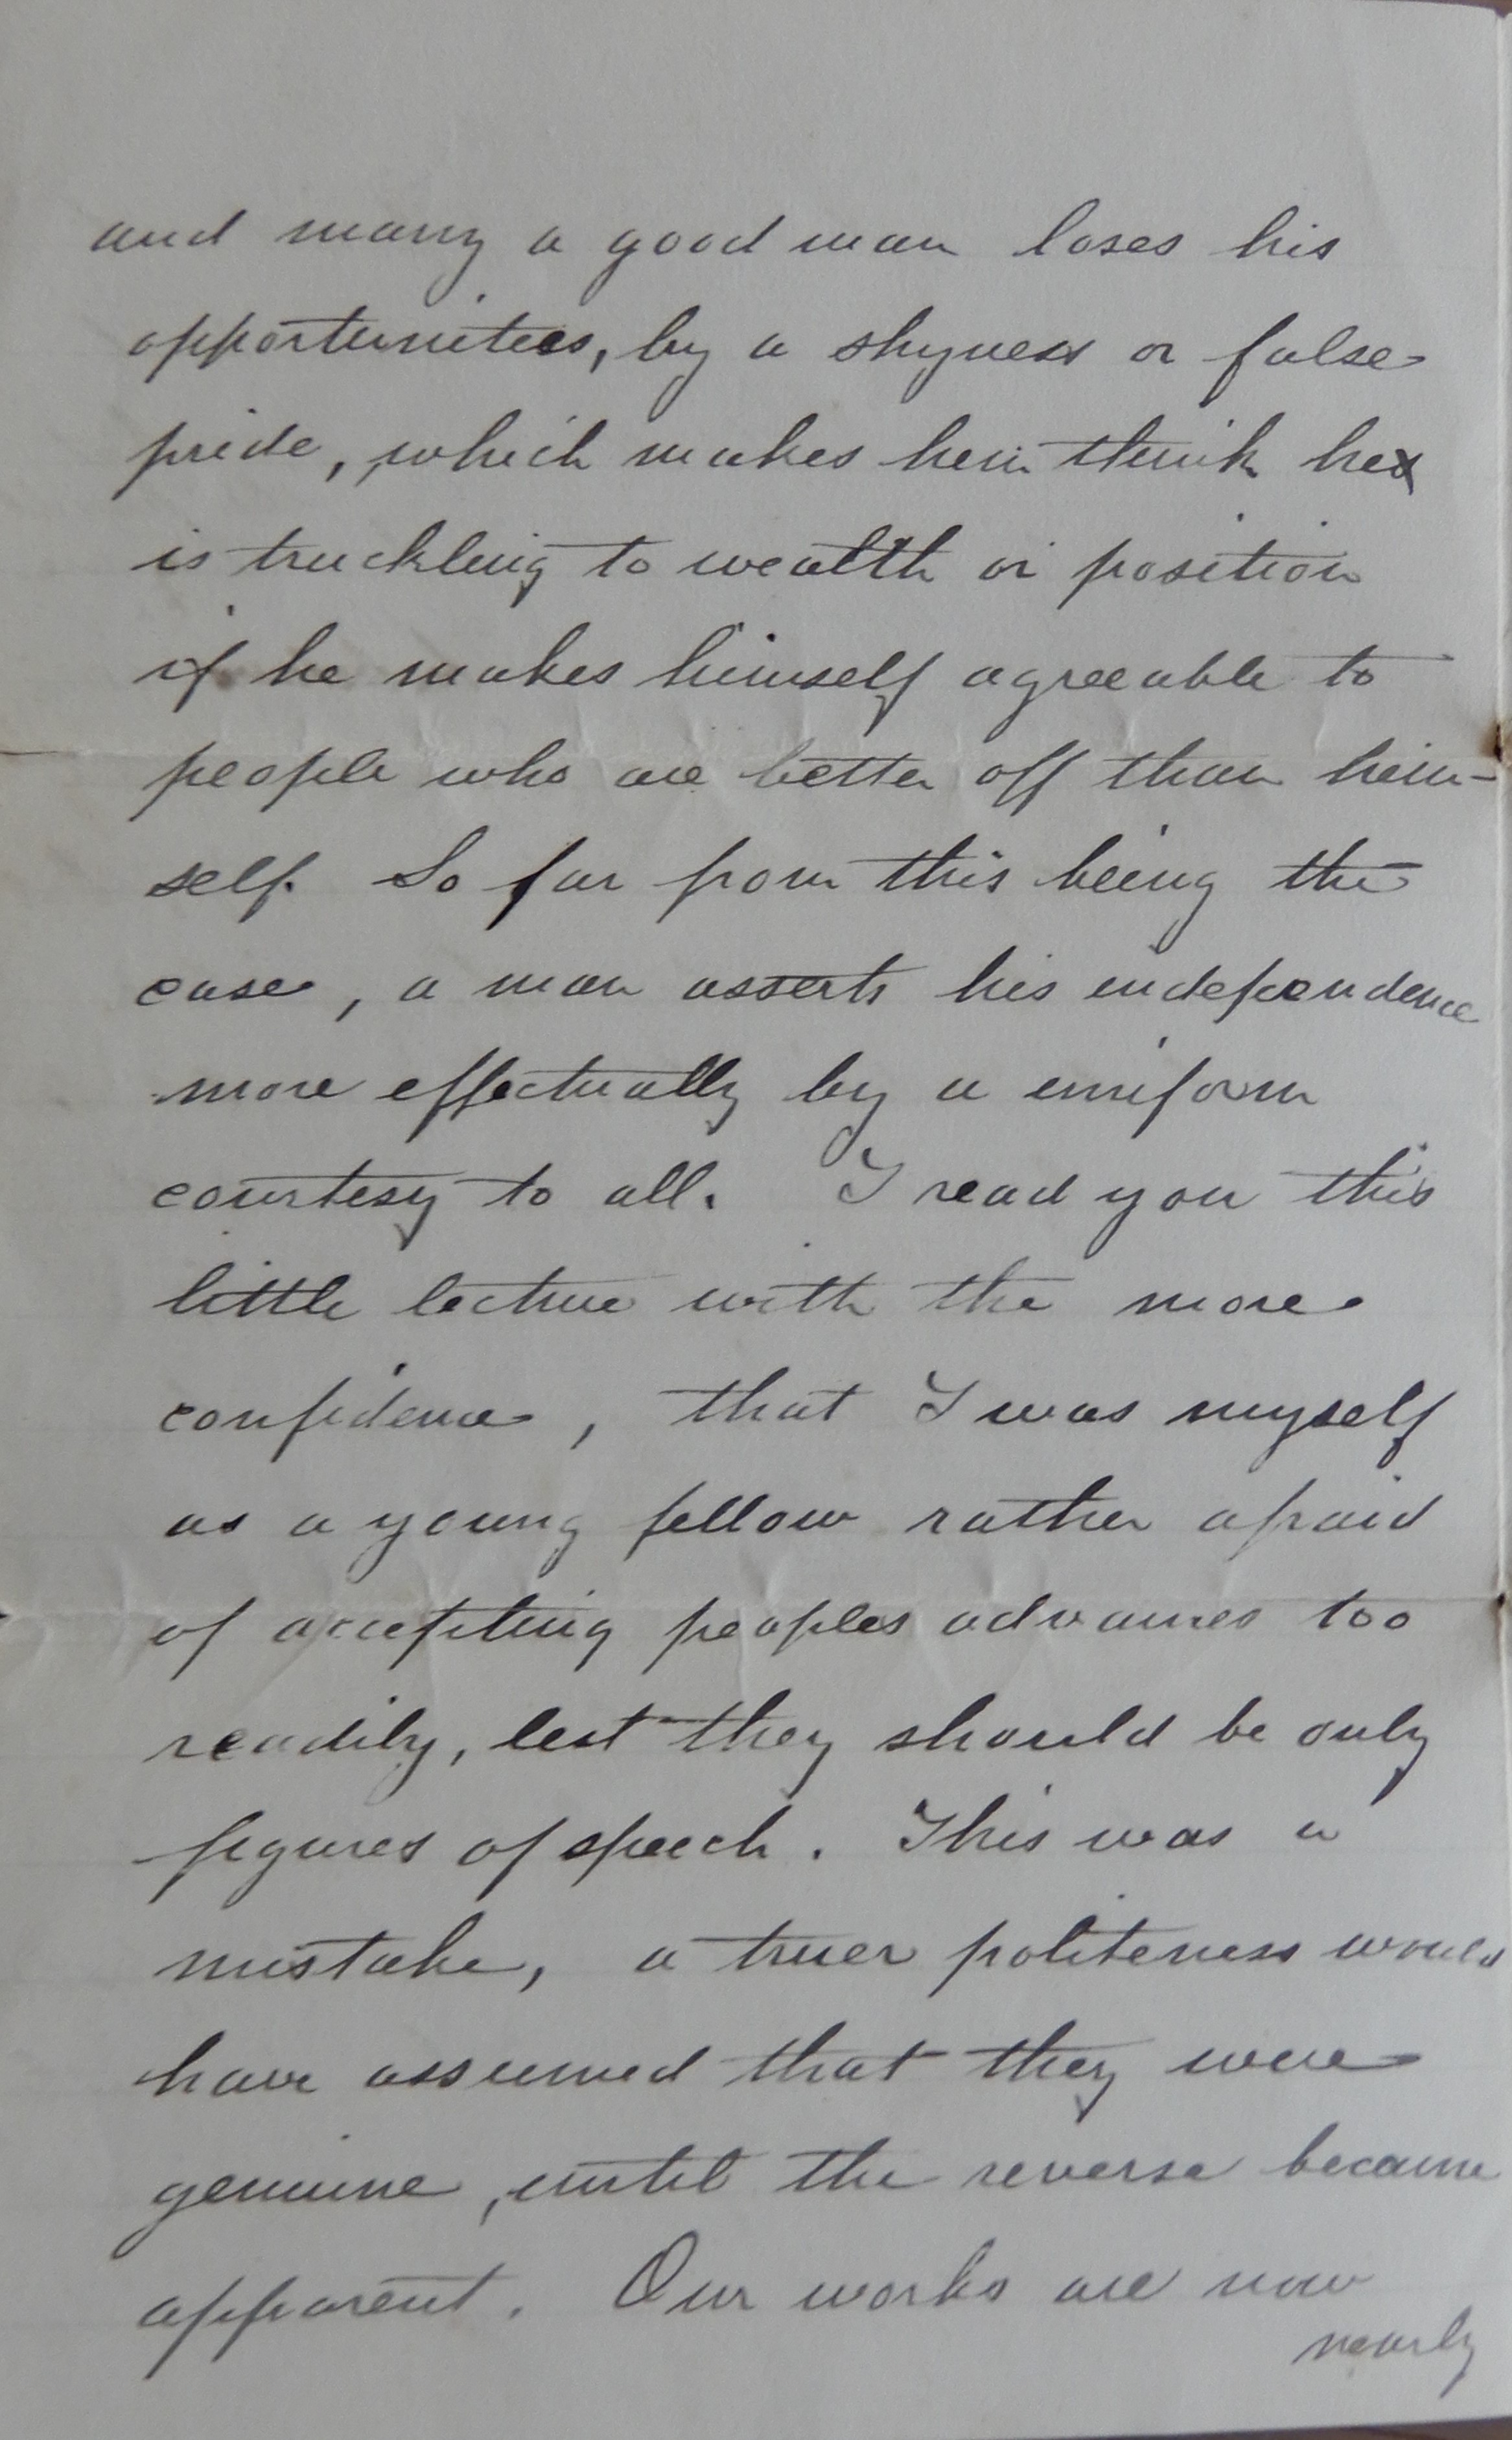 and many a good man loses his
opportunities, by a shyness or false
pride, which makes him think he
is truckling to wealth or position
if he makes himself agreeable to
people who are better off than him-
self. So far from this being the
case, a man asserts his independence
more effectually by a uniform
courtesy to all. I read you this
little lecture with the more
confidence, that I was myself
as a young fellow rather afraid
of accepting peoples advances too
readily, lest they should be only
figures of speech. This was a
mistake, a truer politeness would
have assumed that they were
genuine, until the reverse became
apparent. Our works are now
nearly